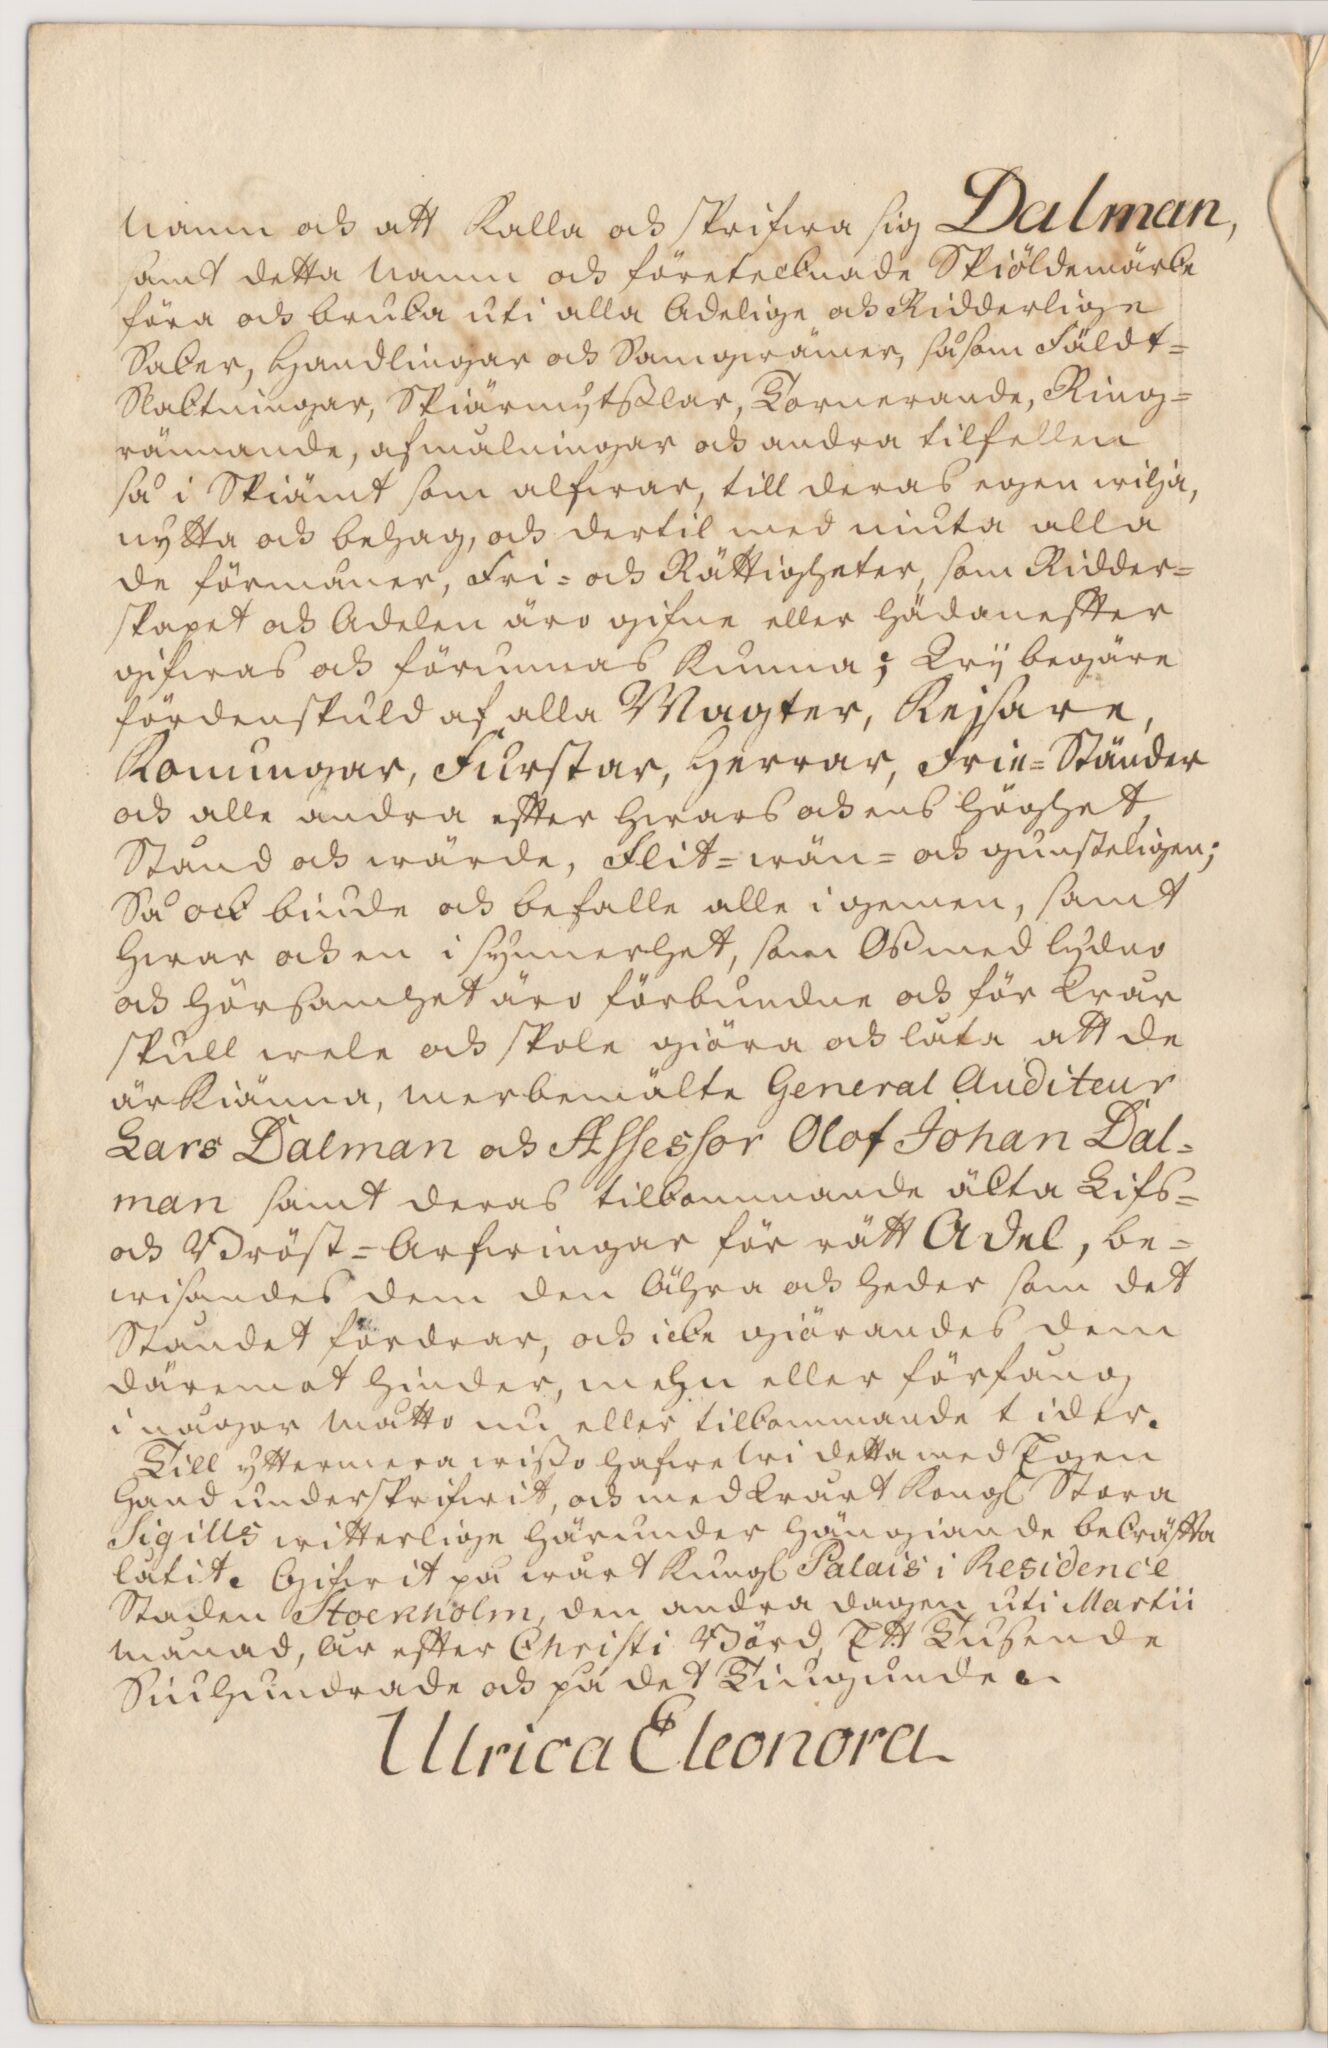 Namn och att Kalla och skrifwa sig Dalman,
samt detta Namn och företecknade Skiöldemärke
föra och bruka uti alla Adelige och Ridderlige
Saker, Handlingar och Samqwämer, såsom Fäldt-
Slaktningar, Skiärmytßlar, Tornerande, Ring-
rännande, afmålningar och andra tilfellen
så i Skiämt som alfwar, till deras egen wilja,
nytta och behag, och dertil med niuta alla
de förmåner, Fri- och Rättigheter, som Ridder-
skapet och Adelen äro gifne eller hädanefter
gifwas och förunnas Kunna; Wij begäre
fördenskuld af alla Magter, Kejsare,
Konungar, Furstar, Herrar, Frie-Ständer
och alle andra efter hwars och ens höghet,
Stånd och wärde, Flit-wän- och gunsteligen;
Så ock biude och befalle alle i gemen, samt
hwar och en i synnerhet, som Oß med lydno
och hörsamhet äro förbundne och för Wår
skull wele och skole giöra och låta att de
ärkiänna, merbemälte General Auditeur
Lars Dalman och Assessor Olof Johan Dal-
man samt deras tilkommande äkta Lifs-
och Bröst-Arfwingar för rätt Adel, be-
wisandes dem den Ähra och heder som det
Ståndet fordrar, och icke giörandes dem
däremot hinder, mehn eller förfång
i någor måtto nu eller tilkommande tider.
Till yttermera wißo hafwe Wi detta med Egen
hand underskrifwit, och med Wårt Kongl Stora
Sigills witterlige härunder hängiande bekräfta
låtit. Gifwit på wårt Kungl Palais i Residence
Staden Stockholm, den andra dagen uti Martii
månad, Åhr efter Christi Börd, Ett Tusende
Siuhundrade och på det Tiugunde.
Ulrica Eleonora